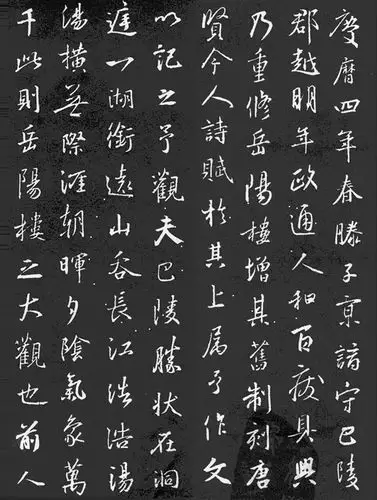 慶曆四年春滕子京謫守巴陵
郡越明年政通人和百廢具興
乃重修岳陽樓增其舊制刻唐
賢今人詩賦於其上屬予作文
以記之予觀夫巴陵勝狀在洞
庭一湖銜遠山吞長江浩浩湯
湯橫無際涯朝暉夕陰氣象萬
千此則岳陽樓之大觀也前人